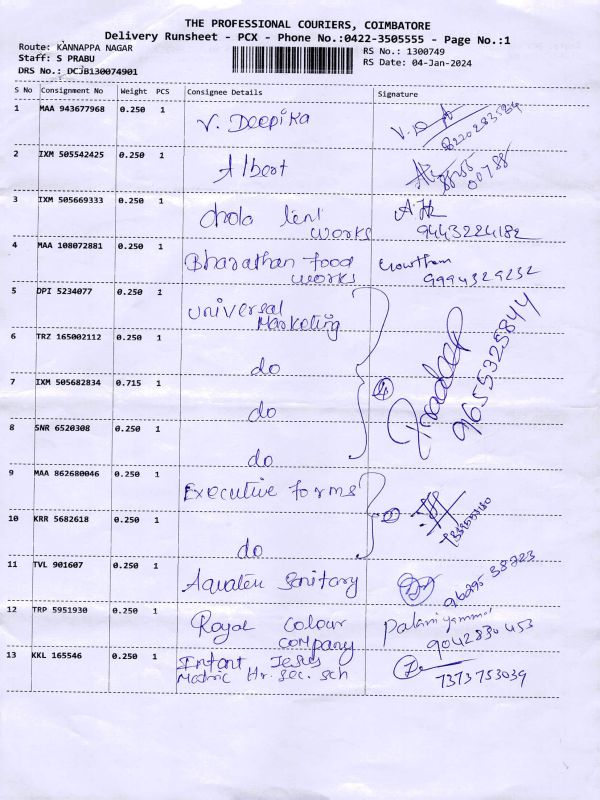 THE PROFESSIONAL COURIERS, COIMBATORE
Delivery Runsheet - PCX - Phone No.:0422-3505555 - Page No.:1
Route: KANNAPPA NAGAR
Staff: S PRABU
DRS No.: DCJB130074901
RS No.: 1300749
RS Date: 04-Jan-2024
S No Consignment No Weight PCS Consignee Details Signature
1 MAA 943677968 0.250 1 V. Deepika
2 IXM 505542425 0.250 1 Albert
3 IXM 505669333 0.250 1 chola
works 9443224182
4 MAA 108072881 0.250 1 Bharathan food Gowtham
works 9994329232
5 DPI 5234077 0.250 1 universal
Marketing
6 TRZ 165002112 0.250 1
do
7 IXM 505682834 0.715 1
do
④ Pradeep 9655325844
8 SNR 6520308 0.250 1
do
9 MAA 862680046 0.250 1
Executive forms
②
10 KRR 5682618 0.250 1
do
11 TVL 901607 0.250 1 Sanitary 96295 38723
12 TRP 5951930 0.250 1 Royal Colour
Company 9042830453
13 KKL 165546 0.250 1 Infant Jesus
Matric Hr. Sec. Sch 7373753039